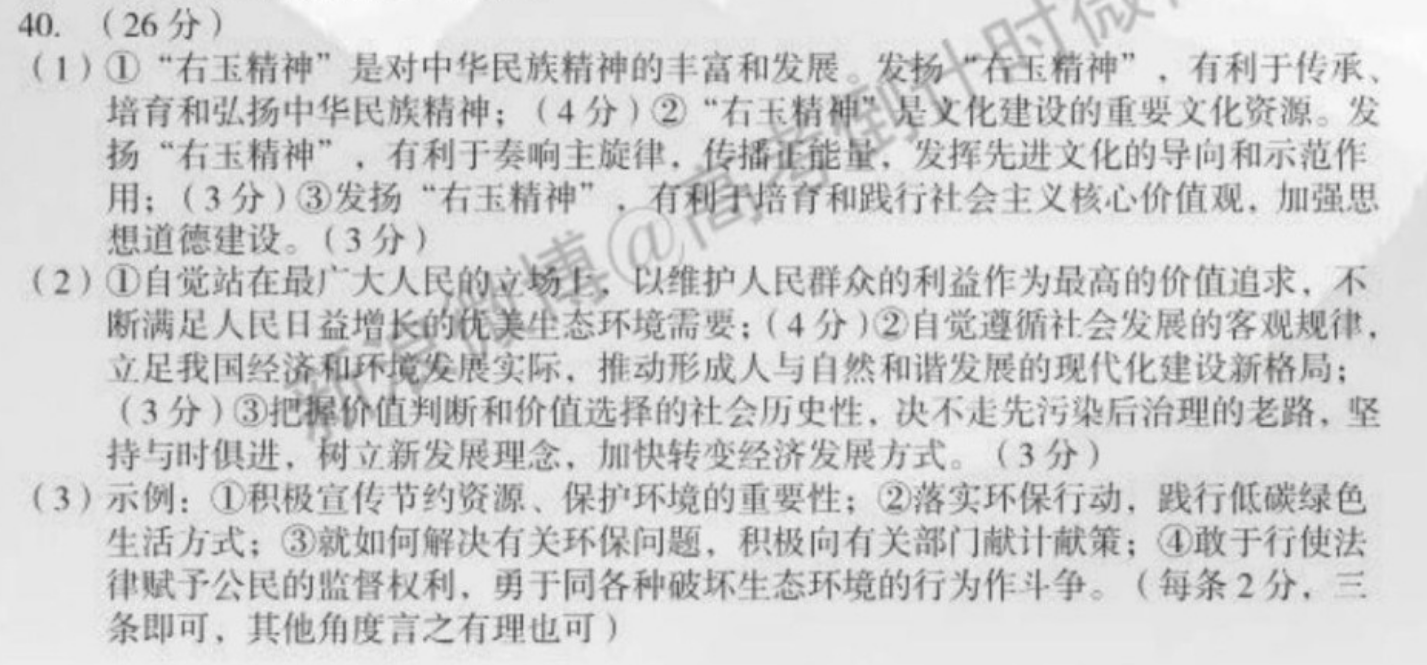 40. （26分）
（1）①“右玉精神”是对中华民族精神的丰富和发展。发扬“右玉精神”，有利于传承、
培育和弘扬中华民族精神；（4分）②“右玉精神”是文化建设的重要文化资源。发
扬“右玉精神”，有利于奏响主旋律，传播正能量，发挥先进文化的导向和示范作
用；（3分）③发扬“右玉精神”，有利于培育和践行社会主义核心价值观，加强思
想道德建设。（3分）
（2）①自觉站在最广大人民的立场上，以维护人民群众的利益作为最高的价值追求，不
断满足人民日益增长的优美生态环境需要；（4分）②自觉遵循社会发展的客观规律，
立足我国经济和环境发展实际，推动形成人与自然和谐发展的现代化建设新格局；
（3分）③把握价值判断和价值选择的社会历史性，决不走先污染后治理的老路，坚
持与时俱进，树立新发展理念，加快转变经济发展方式。（3分）
（3）示例：①积极宣传节约资源、保护环境的重要性；②落实环保行动，践行低碳绿色
生活方式；③就如何解决有关环保问题，积极向有关部门献计献策；④敢于行使法
律赋予公民的监督权利，勇于同各种破坏生态环境的行为作斗争。（每条2分，三
条即可，其他角度言之有理也可）
新浪微博@高考倒计时微